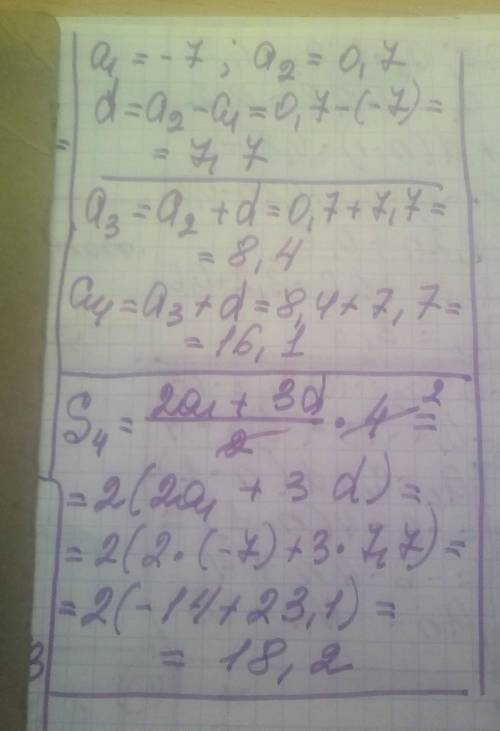 a₁ = -7 ; a₂ = 0,7
d = a₂ - a₁ = 0,7 - (-7) =
= 7,7
a₃ = a₂ + d = 0,7 + 7,7 =
= 8,4
a₄ = a₃ + d = 8,4 + 7,7 =
= 16,1
S₄ = (2a₁ + 3d)/2 · 4 ² =
= 2(2a₁ + 3d) =
= 2(2·(-7) + 3·7,7) =
= 2(-14 + 23,1) =
= 18,2
3